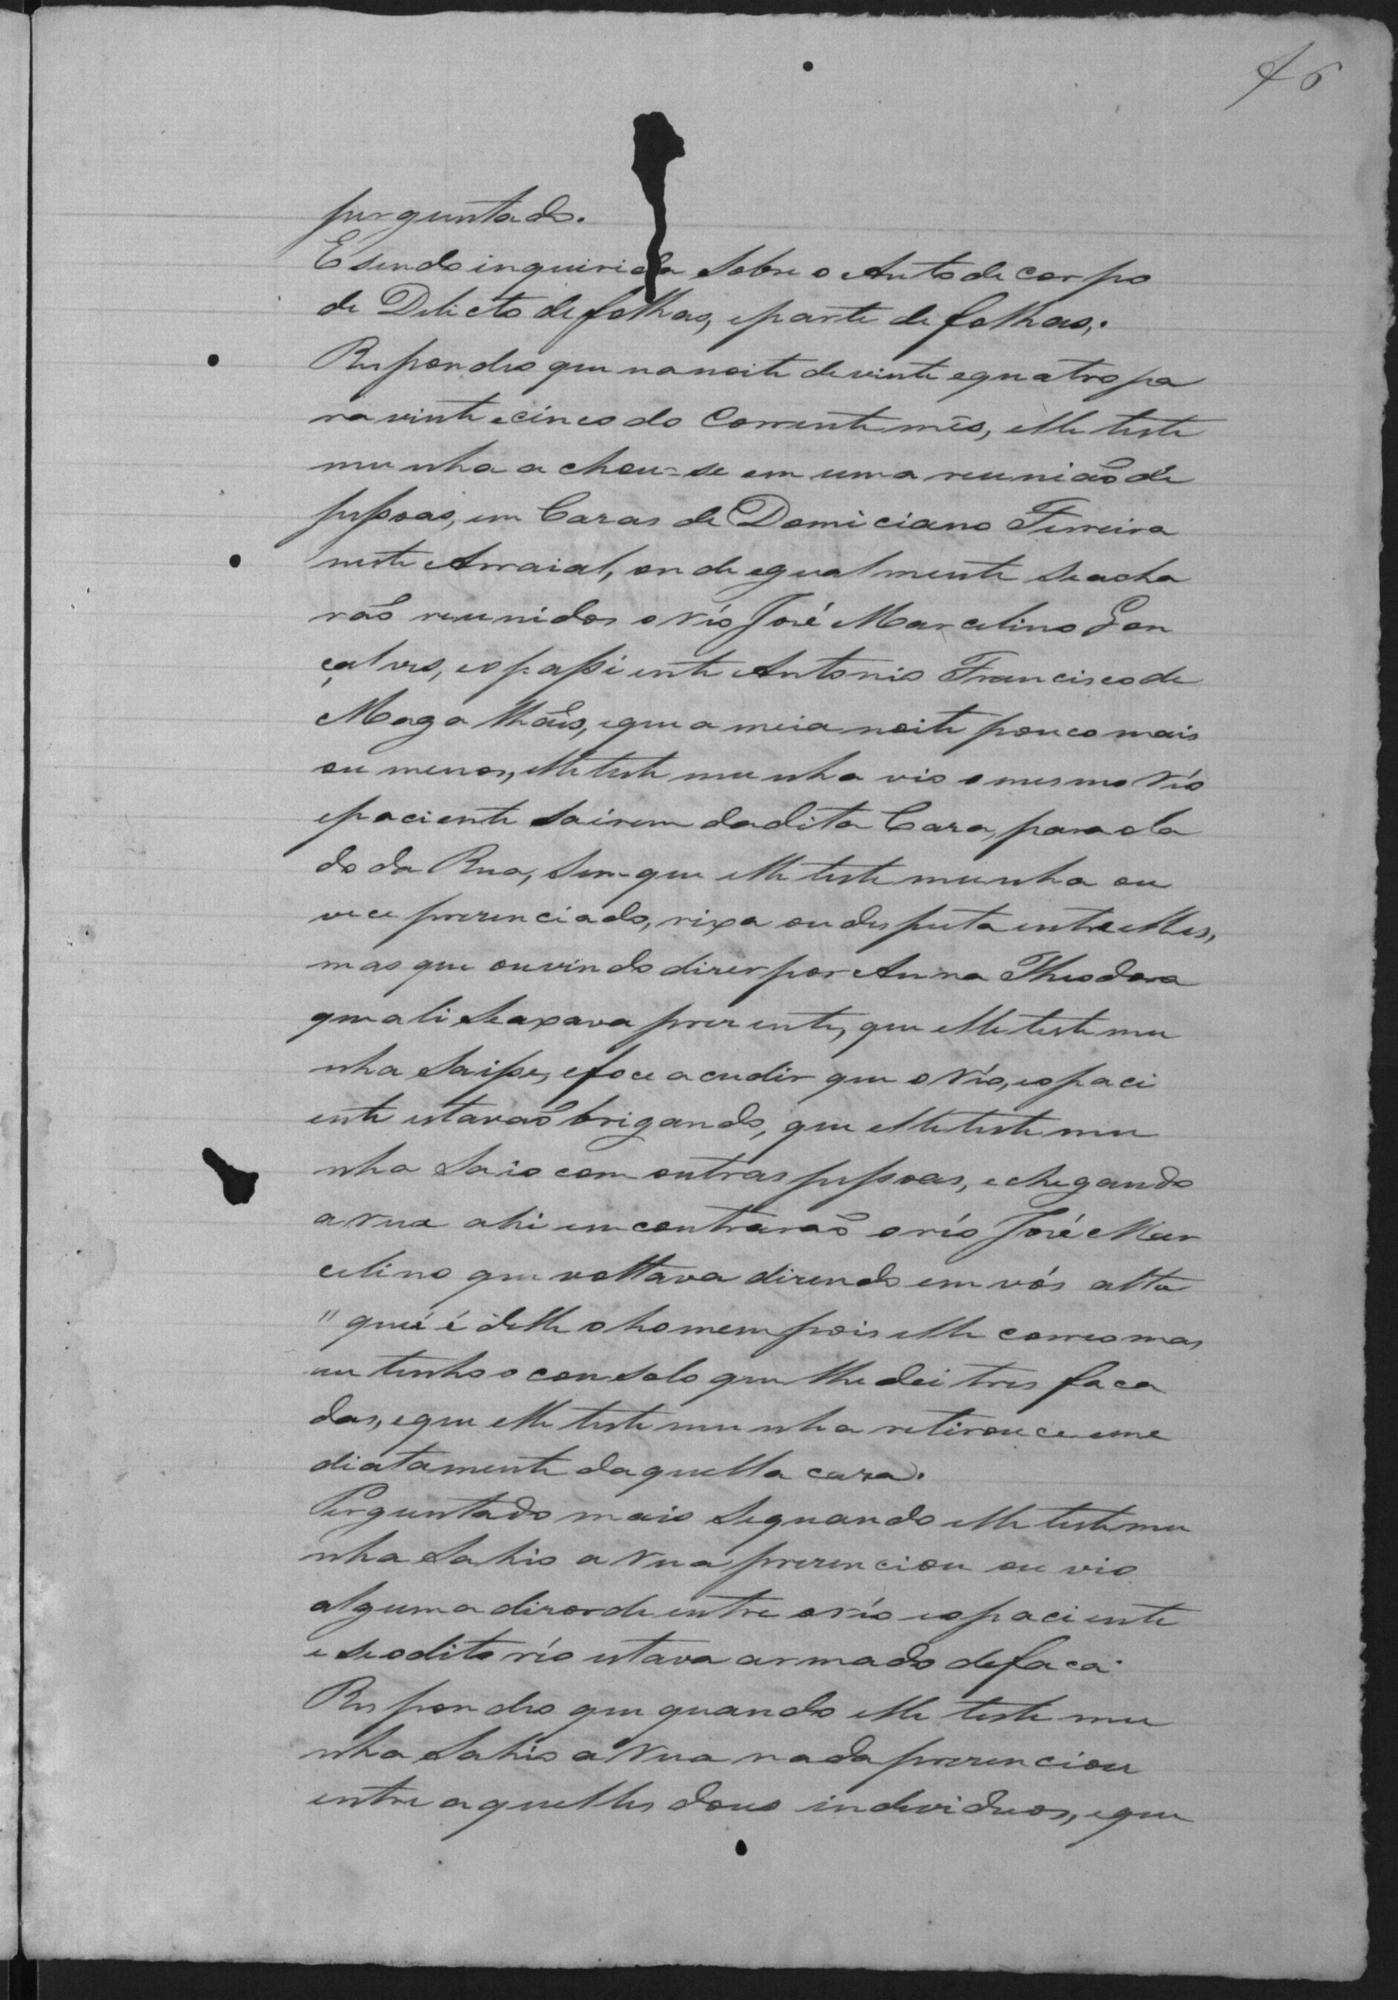 46
perguntado.
E sendo inquirida sobre o Auto de corpo
de Delicto de folhas, e parte de folhas,.
Respondeo que na noite de vinte e quatro pa
ra vinte e cinco do Corrente mês, elle teste
munha a chou-se em uma reunião de
pessoas, em Caras de Domiciano Ferreira
neste Arraial, onde egualmente se acha
rão reunidos o réo José Marcelino Gon
çalves, e o passiente Antonio Francisco de
Magalhães, e que a meia noite pouco mais
ou menos, elle teste munha vio o mesmo réo
e paciente saírem da dita Cara, para o la
do da Rua, sem que elle teste munha ou
vece prerenciado, rixa ou desputa entre elles,
mas que ouvindo direr por Anna Theodora
que ali se axava prerente, que elle testemu
nha saisse, e foce acudir que o réo, e o paci
ente estavão brigando, que elle testemu
nha saio com outras pessoas, e chegando
a rua ahi emcontrarão o réo José Mar
celino que voltava direndo em vós alta
" que é delle o homem pois elle correo mas
eu tenho o consolo que lhe dei tres faca
das, e que elle testemunha retirouce eme
diatamente daquella cara.
Perguntado mais se quando elle testemu
nha sahio a rua prerenciou ou vio
alguma dirorde entre o réo e o paciente
e se o dito réo estava armado de faca.
Respondeo que quando elle testemu
nha sahio a rua nada prerenciou
entre aquelles dous individuos, e que